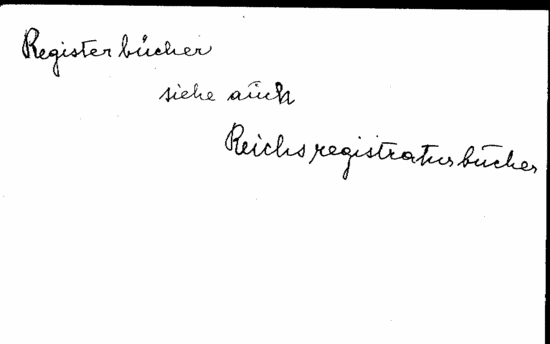 Registerbücher
siehe auch
Reichsregistraturbücher